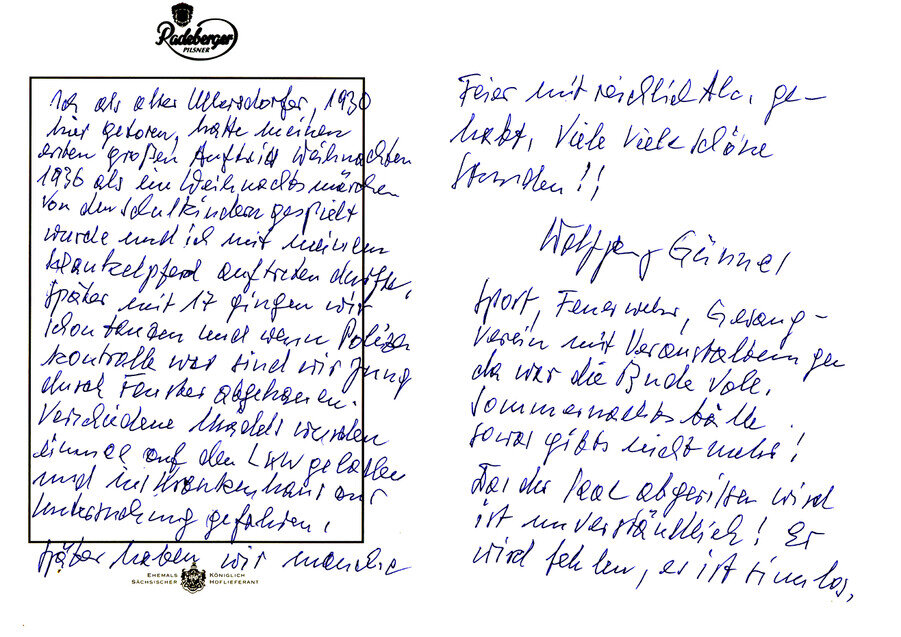 Radeberger
PILSNER
Ich als alter Ullersdorfer, 1930
hier geboren, hatte meinen
ersten großen Auftritt Weihnachten
1936 als ein Weihnachtsmärchen
von den Schulkindern gespielt
wurde und ich mit meinem
Schaukelpferd auftreten durfte,
später mit 17 gingen wir
schon tanzen und wenn Polizei
kontrolle war sind wir Jung
durch Fenster abgehauen.
Verschiedene Mädels wurden
einmal auf den LKW geladen
und ins Krankenhaus zur
Untersuchung gefahren,
später haben wir manche
EHEMALS KÖNIGLICH
SÄCHSISCHER HOFLIEFERANT
Feier mit reichlich Alc. ge-
habt, Viele Viele schöne
Stunden!!
Wolfgang Günzel
Sport, Feuerwehr, Gesang-
verein mit Veranstaltungen
da war die Bude voll.
Sommernachtsbälle
sowas gibts nicht mehr!
Das der Saal abgerissen wird
ist unverständlich! Er
wird fehlen, es ist sinnlos,